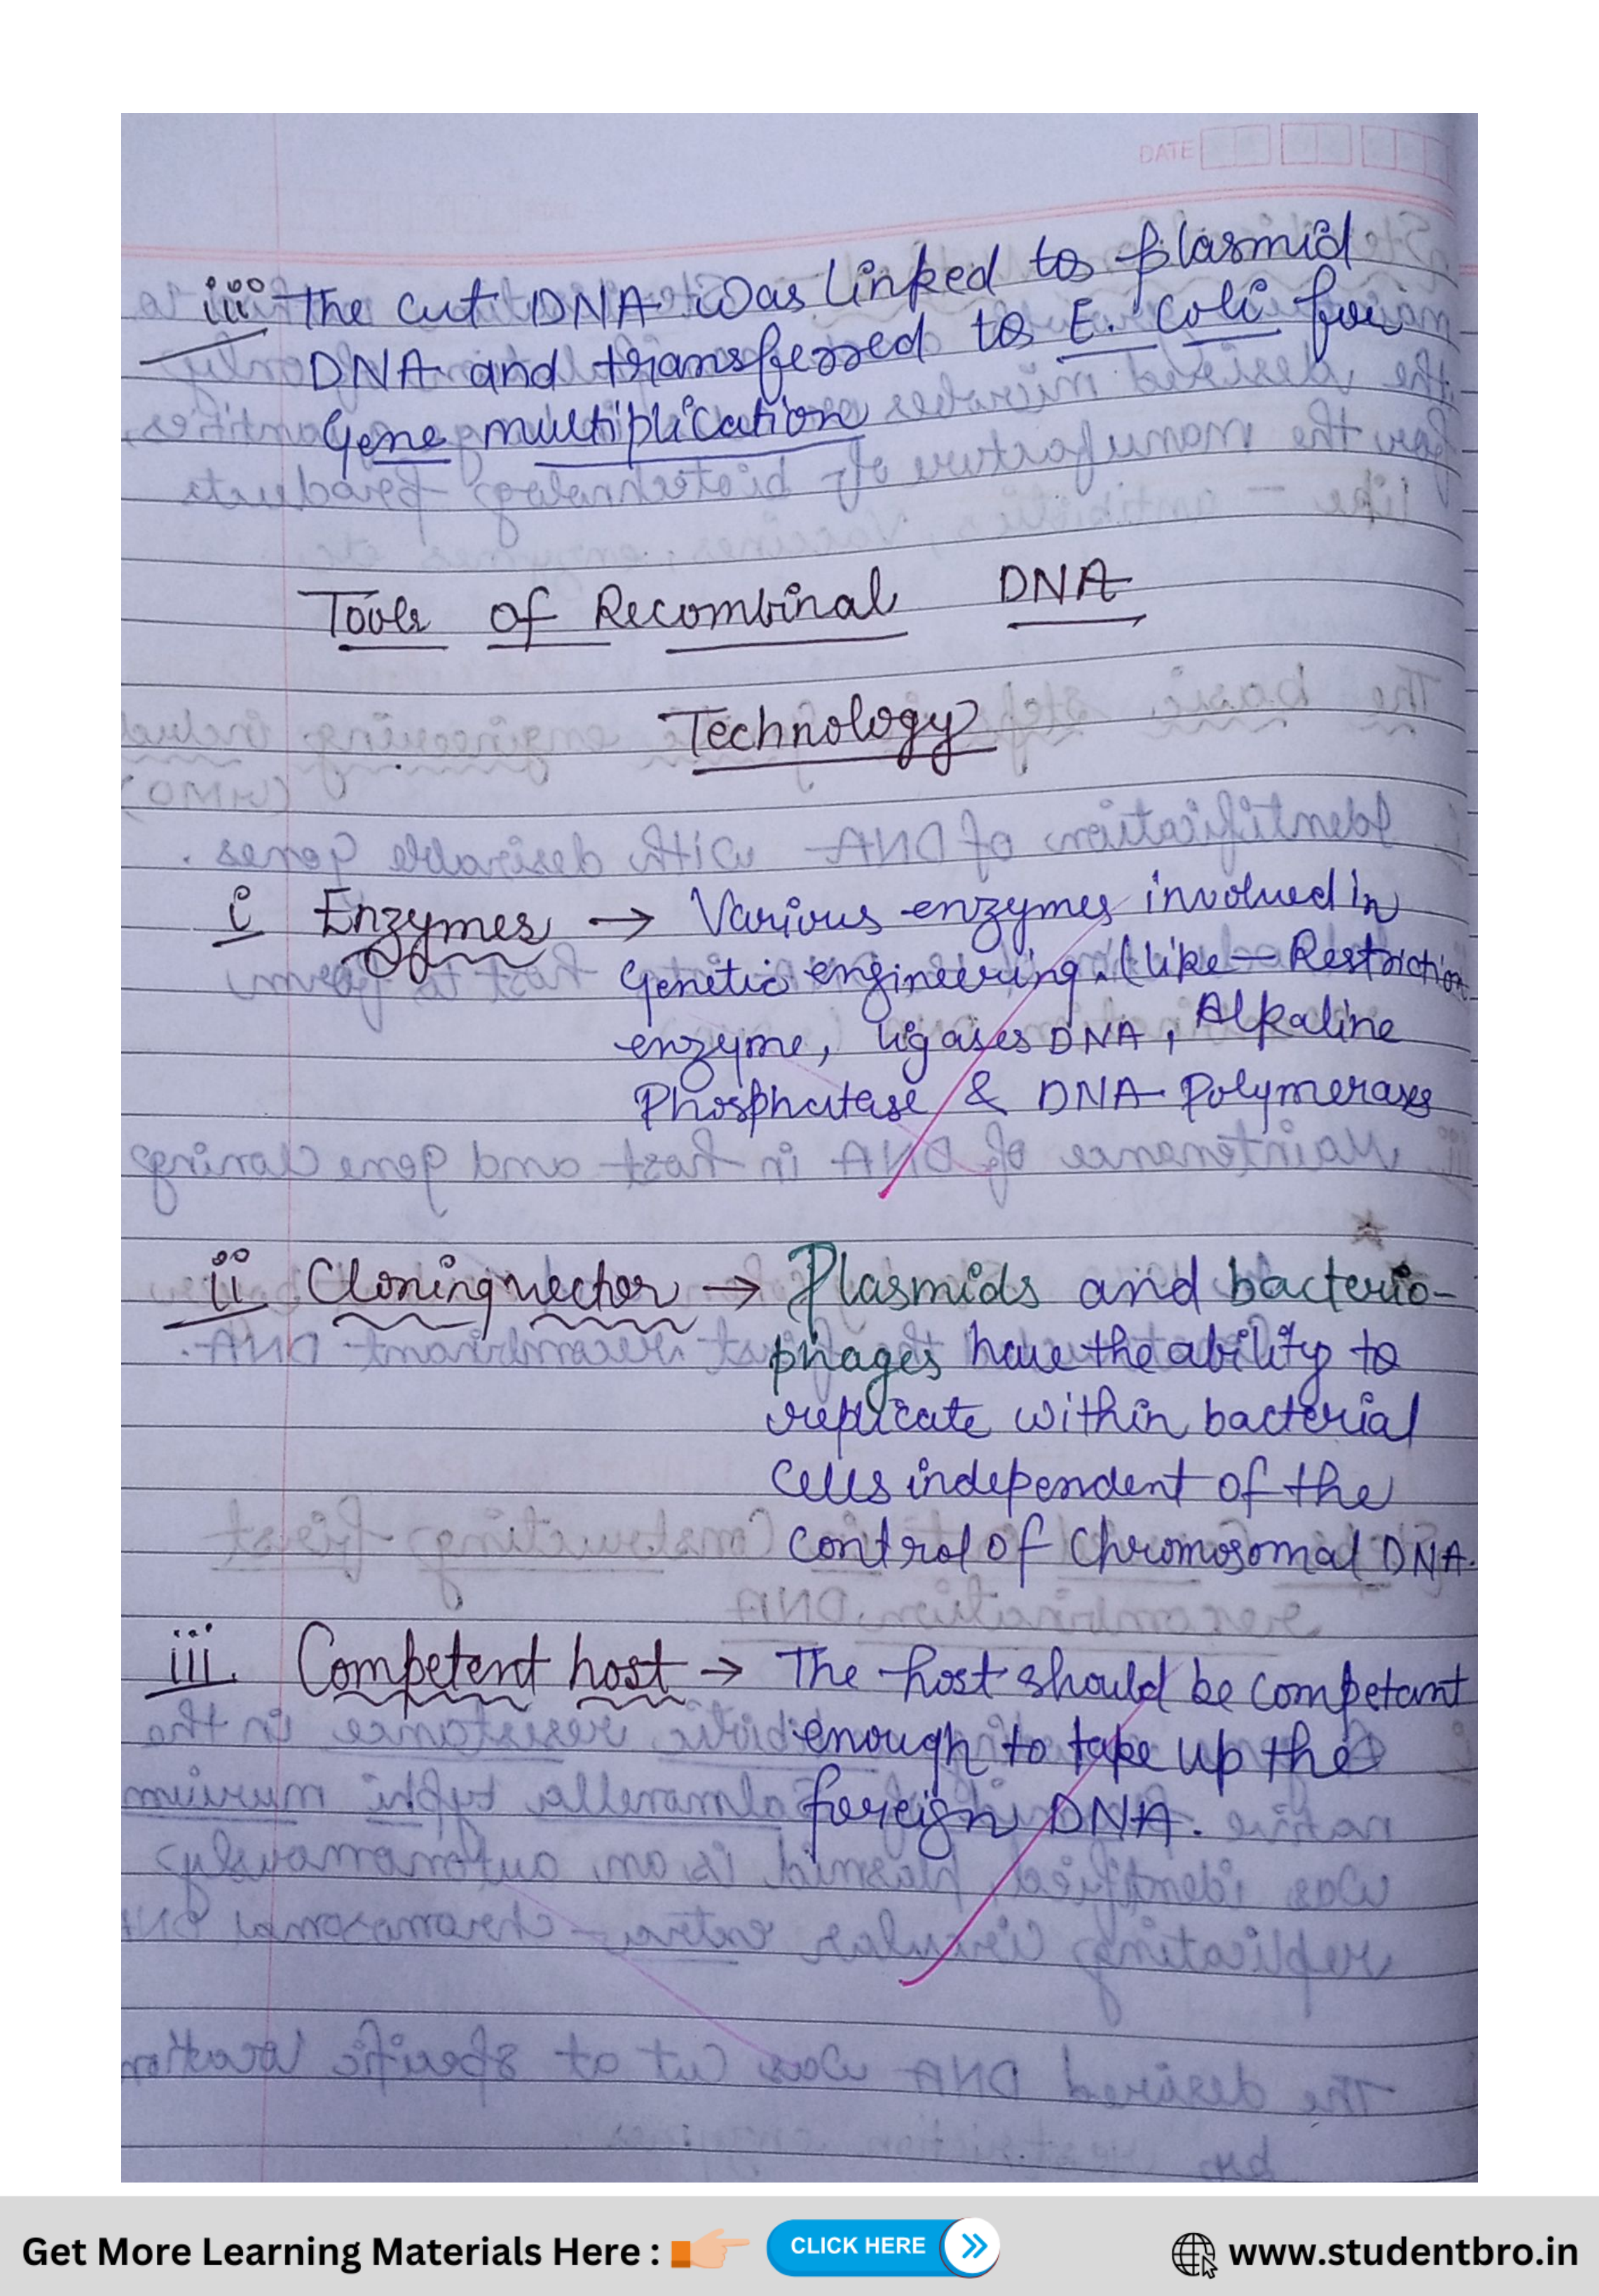 DATE
iii The cut DNA was linked to plasmid
DNA and transferred to E. coli for
Gene multiplication
Tools of Recombinal DNA
Technology
i Enzymes → Various enzymes involved in
Genetic engineering. (like - Restriction
enzyme, ligases DNA, Alkaline
Phosphatase & DNA Polymerases
ii Cloning vector → Plasmids and bacterio-
phages have the ability to
replicate within bacterial
cells independent of the
control of Chromosomal DNA.
iii. Competent host → The host should be competant
enough to take up the
foreign DNA.
Get More Learning Materials Here : CLICK HERE www.studentbro.in